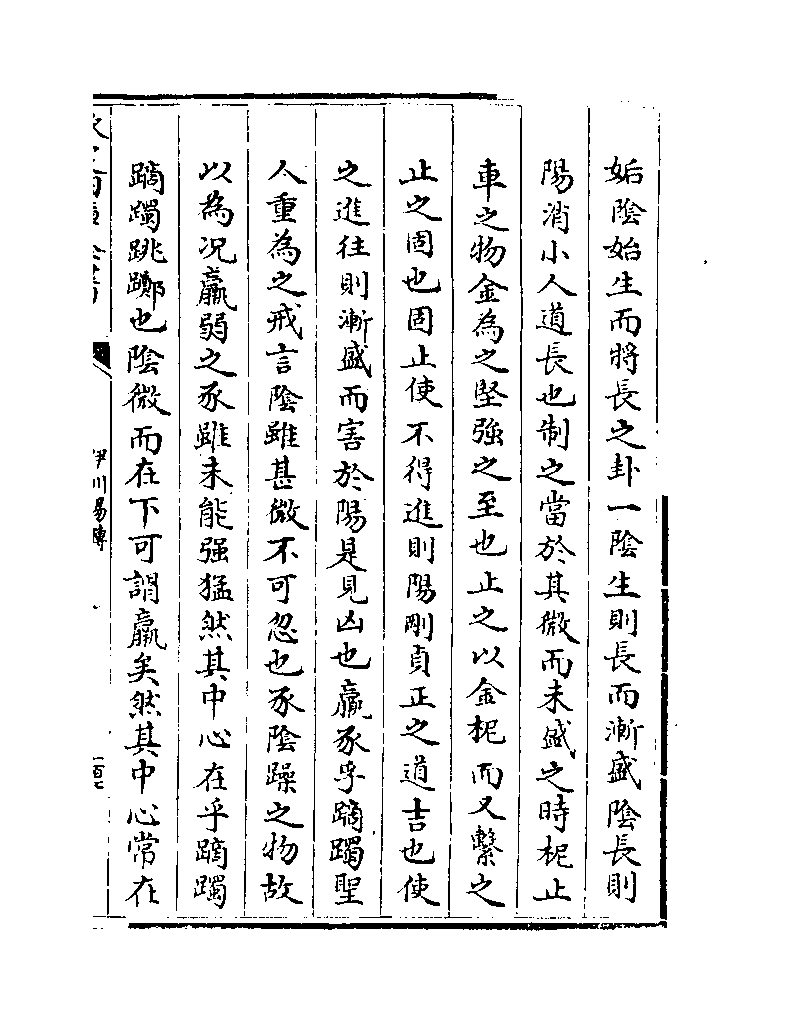 姤陰始生而將長之卦一陰生則長而漸盛陰長則
陽消小人道長也制之當於其微而未盛之時柅止
車之物金為之堅強之至也止之以金柅而又繫之
止之固也固止使不得進則陽剛貞正之道吉也使
之進往則漸盛而害於陽是見凶也羸豕孚蹢躅聖
人重為之戒言陰雖甚微不可忽也豕陰躁之物故
以為况羸弱之豕雖未能强猛然其中心在乎蹢躅
蹢躅跳躑也陰微而在下可謂羸矣然其中心常在
伊川易傳